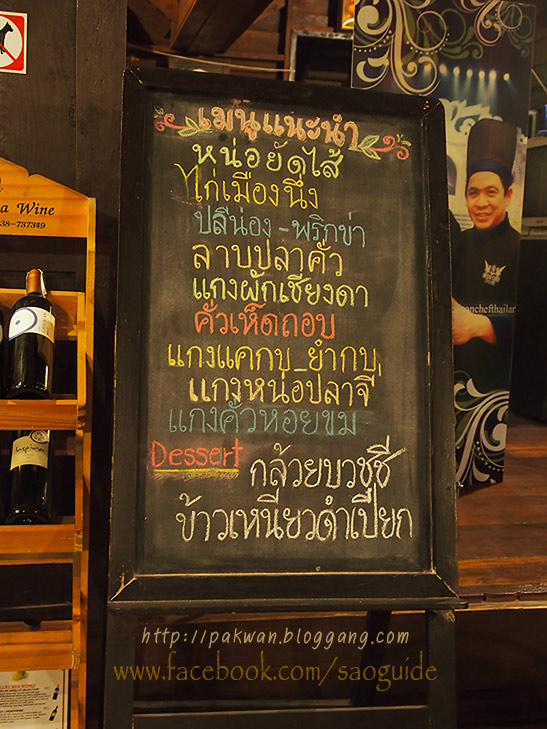 เมนูแนะนำ
หน่อยัดไส้
ไก่เมืองนึ่ง
ปลีน่อง - พริกข่า
ลาบปลาคั่ว
แกงผักเชียงดา
คั่วเห็ดถอบ
แกงแคกบ_ยำกบ
แกงหน่อปลาจี่
แกงคั่วหอยขม
Dessert กล้วยบวชชี
ข้าวเหนียวดำเปียก
a Wine
38-737349
http://pakwan.bloggang.com
www.facebook.com/saoguide